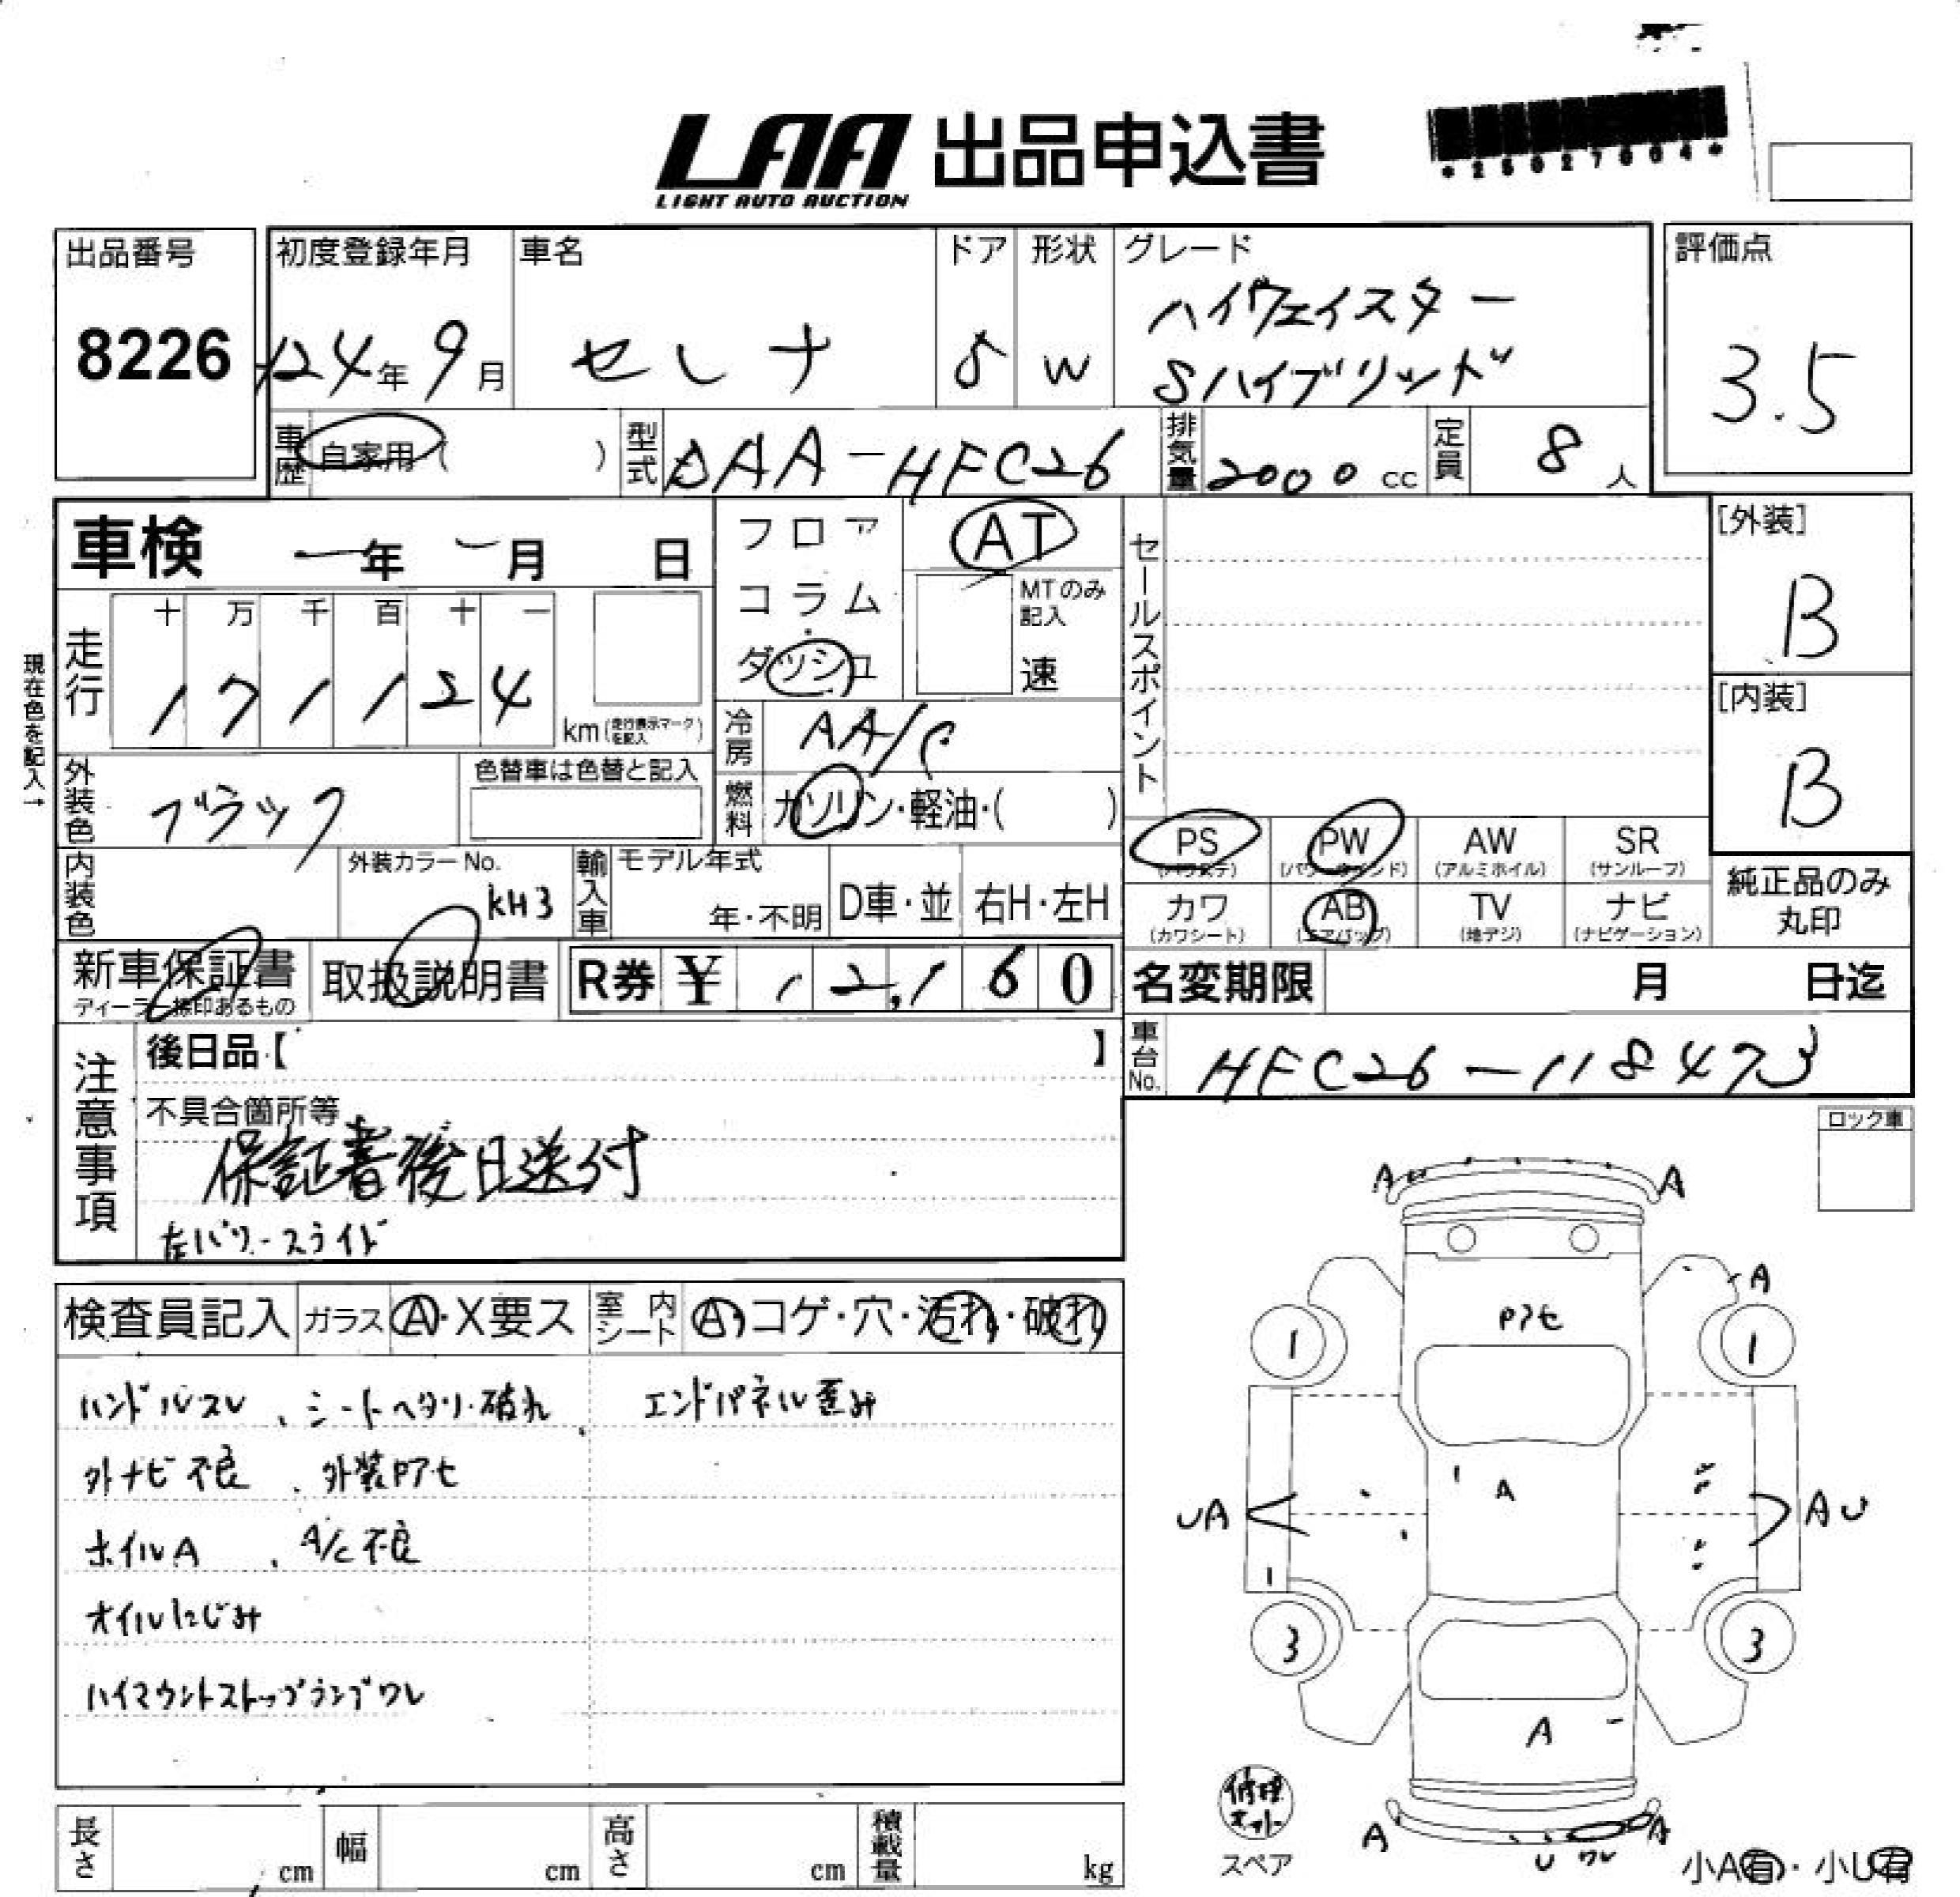 LAA 出品申込書
LIGHT AUTO AUCTION
*25027004*
出品番号
8226
初度登録年月
H24年9月
車名
セレナ
ドア
5
形状
W
グレード
ハイウェイスター
Sハイブリッド
評価点
3.5
車歴
自家用( )
型式
DAA-HFC26
排気量
2000cc
定員
8人
車検 ー年 ー月 日
フロア
コラム
ダッシュ
AT
MTのみ記入
速
セールスポイント
[外装]
B
[内装]
B
現在色を記入→
走行
十 万 千 百 十 一
1 7 1 1 2 4
km(走行表示マークを記入)
冷房
AA/C
外装色
ブラック
色替車は色替と記入
燃料
ガソリン・軽油・( )
PS
(パワステ)
PW
(パワーウインド)
AW
(アルミホイル)
SR
(サンルーフ)
内装色
外装カラーNo.
KH3
輸入車
モデル年式
年・不明
D車・並
右H・左H
カワ
(カワシート)
AB
(エアバッグ)
TV
(地デジ)
ナビ
(ナビゲーション)
純正品のみ
丸印
新車保証書
ディーラー捺印あるもの
取扱説明書
R券 ¥ 12,160
名変期限 月 日迄
注意事項
後日品【 】
車台No.
HFC26-118473
不具合箇所等
保証書後日送付
左パワースライド
ロック車
検査員記入
ガラス A・X要ス
室内シート A・コゲ・穴・汚れ・破れ
ハンドルスレ、シートヘタリ・破れ
エンドパネル歪み
外ナビ不良、外装Pアセ
ホイルA、A/C不良
オイルにじみ
ハイマウントストップランプワレ
A A
A
Pアセ
1 1
A
UA AU
1
3 3
A
修理キット
スペア
A A
U ワレ
小A有・小U有
長さ cm
幅 cm
高さ cm
積載量 kg